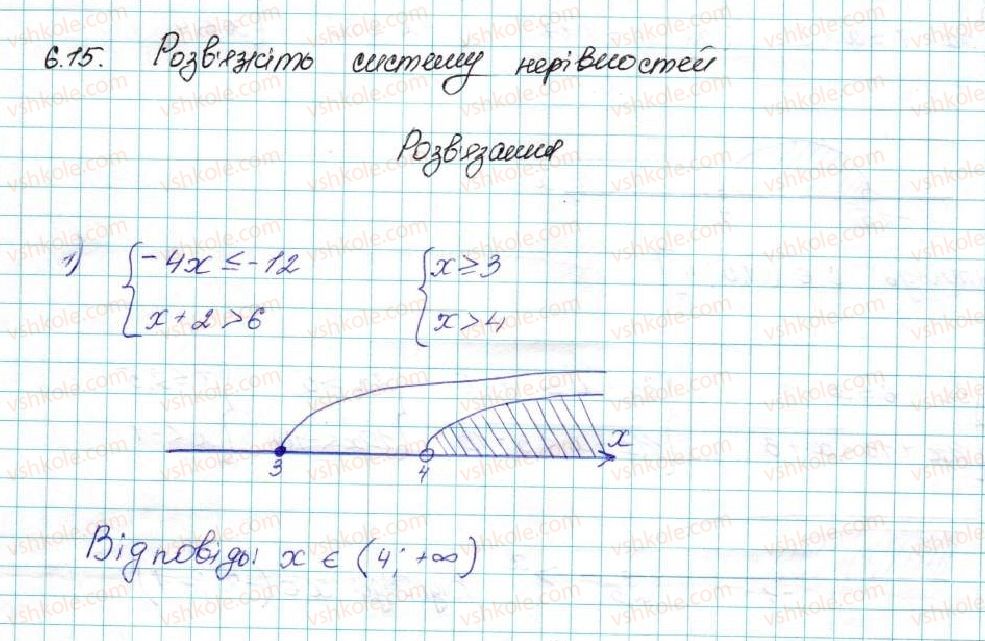 6.15. Розв'яжіть систему нерівностей
Розв'язання
1) { -4x ≤ -12 { x ≥ 3
x + 2 > 6 x > 4
x
3 4
Відповідь: x ∈ (4; +∞)
vshkole.com